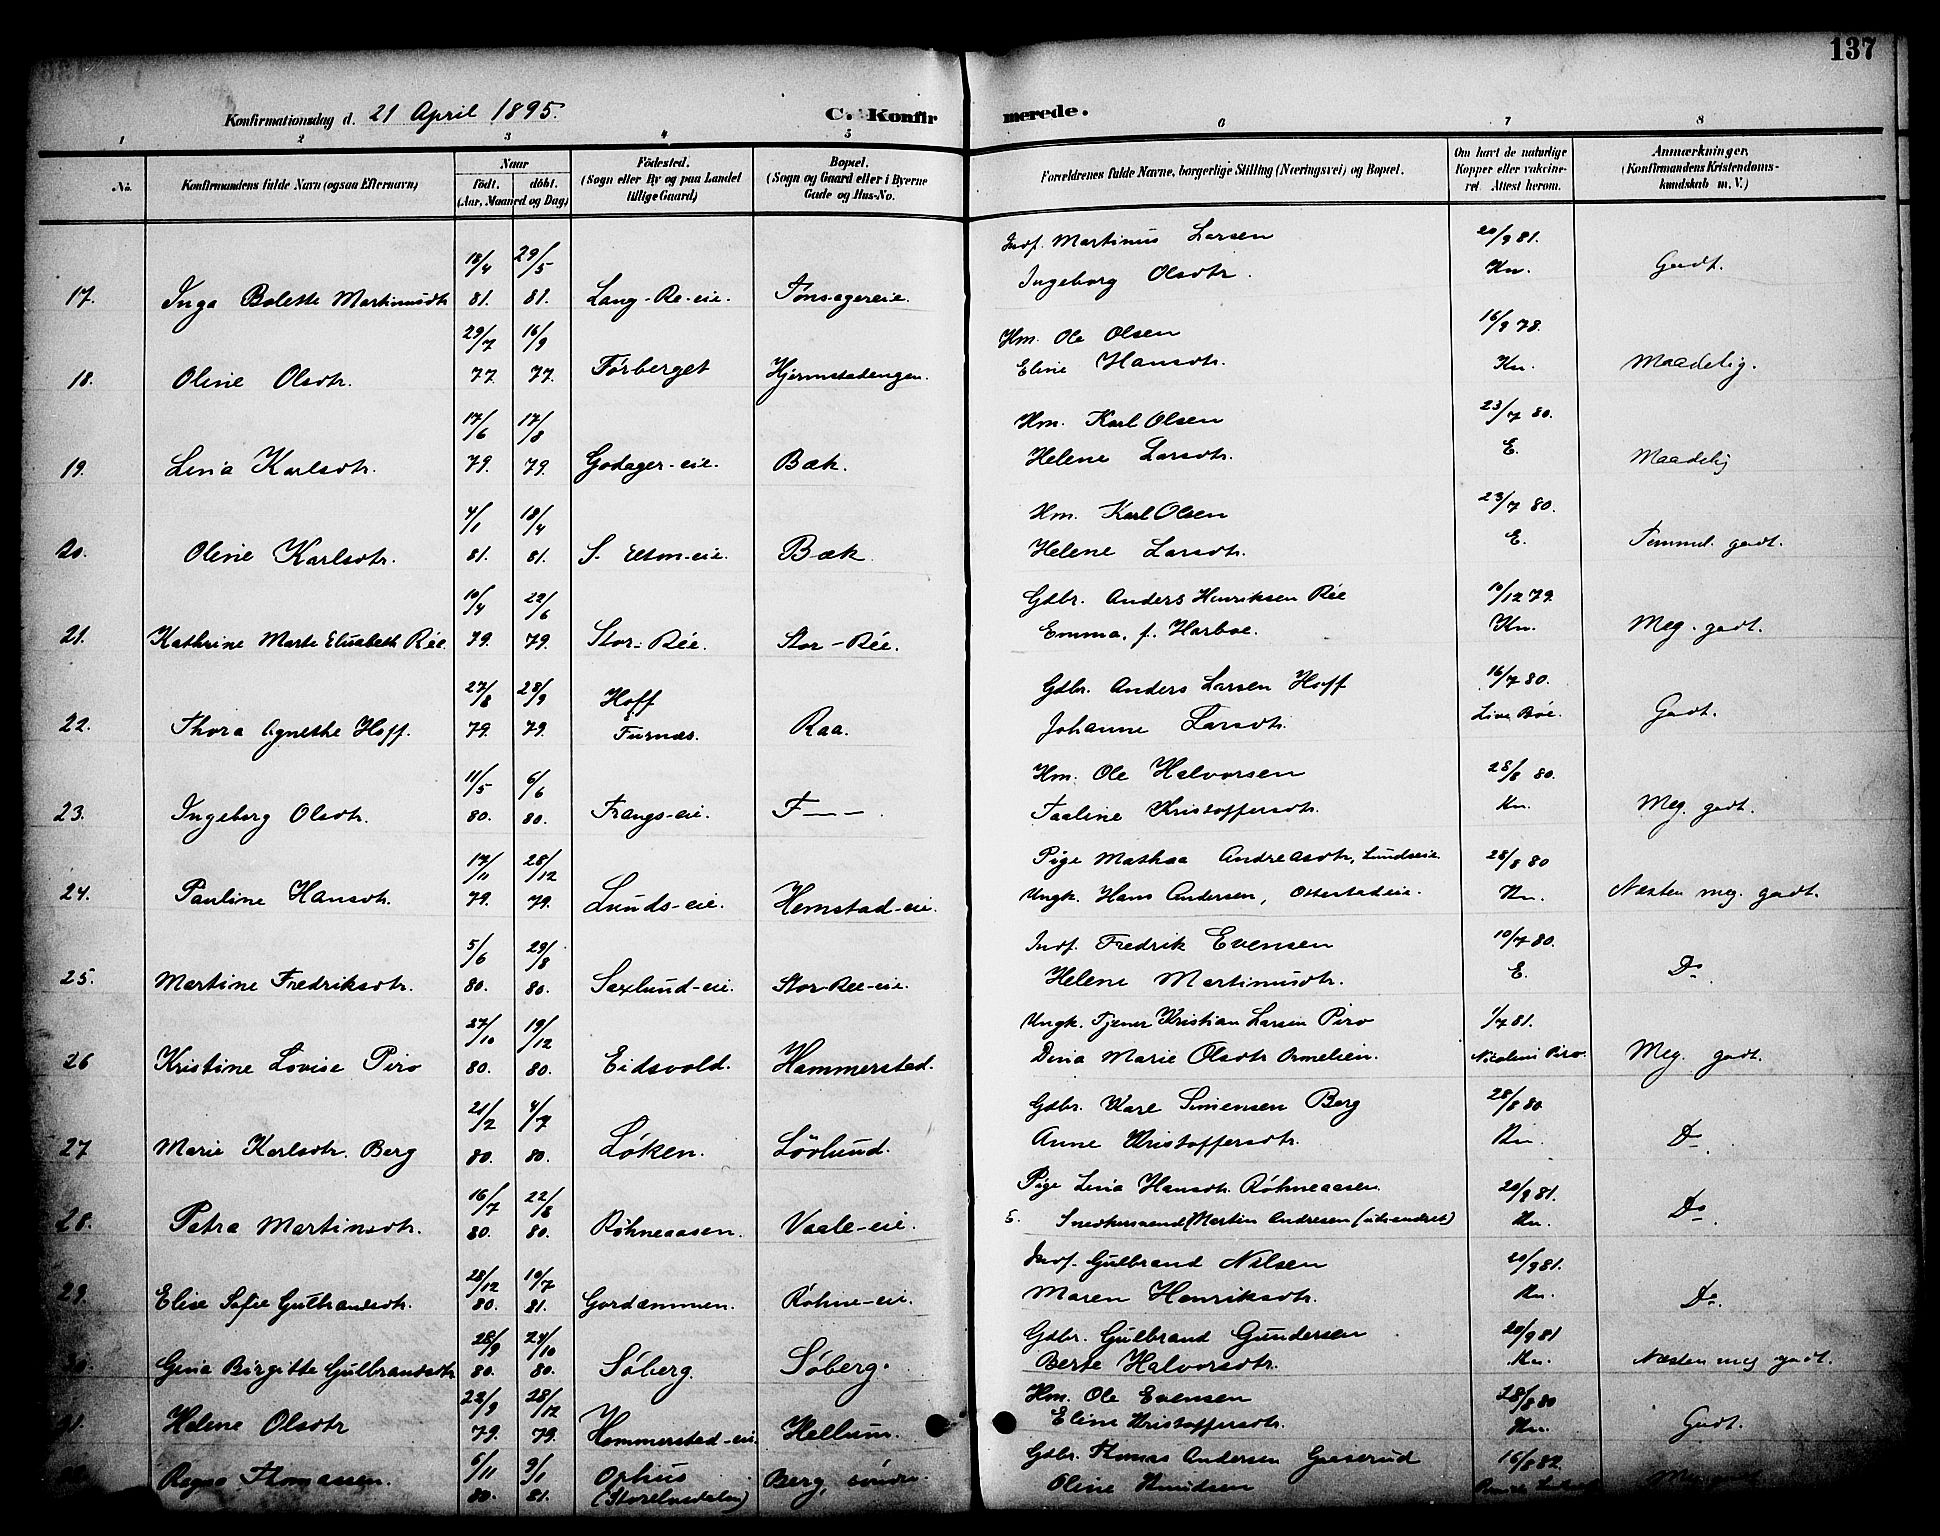 137
Konfirmationsdag d. 21 April 1895.
C. Konfirmerede.
1 2 3 4 5 6 7 8
No. Konfirmandens fulde Navn (ogsaa Efternavn) Naar født, døbt. (Aar, Maaned og Dag) Fødested. (Sogn eller By og paa Landet tillige Gaard) Bopæl. (Sogn og Gaard eller i Byerne Gade og Hus-No. Forældrenes fulde Navne, borgerlige Stilling (Næringsvei) og Bopæl. Om havt de naturlige Kopper eller vaccineret. Attest herom. Anmærkninger. (Konfirmandens Kristendomskundskab m. V.)
18/4 29/5 Indf. Martinus Larsen 20/9 81.
17. Inga Bolette Martinusdtr 81. 81. Lang-Re-eie. Tønsagereie. Ingeborg Olsdtr. Kn. Godt.
29/7 16/9 Hm. Ole Olsen 16/9 78.
18. Oline Olsdtr. 77. 77. Førberget Hjermstadengen. Eline Hansdtr. Kn. Maadelig.
17/6 17/8 Hm. Karl Olsen 23/7 80.
19. Lina Karlsdtr. 79. 79. Godager-eie. Bæk. Helene Larsdtr. E. Maadelig
4/1 18/4 Hm. Karl Olsen 23/7 80.
20. Oline Karlsdtr. 81. 81. S. Elton-eie. Bæk. Helene Larsdtr. E. Temmel. godt.
10/4 22/6 Gdbr. Anders Henriksen Rée 10/12 79.
21. Kathrine Marte Elisabeth Rée. 79. 79. Stor-Rée. Stor-Rée. Emma, f. Harboe. Kn. Meg. godt.
27/8 28/9 Hoff Gdbr. Anders Larsen Hoff 16/7 80.
22. Thora Agnethe Hoff. 79. 79. Furnæs. Raa. Johanne Larsdtr. Line Bøe. Godt.
11/5 6/6 Hm. Ole Halvorsen 28/8 80.
23. Ingeborg Olsdtr. 80. 80. Frangs-eie. F-- . Taaline Kristoffersdtr. Kn. Meg. godt.
17/11 28/12 Pige Mathea Andreasdtr, Lundseie 28/8 80
24. Pauline Hansdtr. 79. 79. Lunds-eie. Hemstad-eie. Ungk. Hans Andersen, Ottestadeie. Kn. Næsten meg. godt.
5/6 29/8 Indf. Fredrik Evensen 10/7 80.
25. Martine Fredriksdtr. 80. 80. Saxlund-eie. Stor-Ree-eie. Helene Martinusdtr. E. Do.
27/10 19/12 Ungk. Tjener Kristian Larsen Piro 1/7 81.
26 Kristine Lovise Piro 80. 80. Eidsvold. Hammerstad. Dina Marie Olsdtr Ormelien. Nicolini Piro. Meg. godt.
21/2 4/7 Gdbr. Karl Simensen Berg 28/8 80
27 Marie Karlsdtr. Berg 80. 80. Løken. Lövlund. Anne Kristoffersdtr. Kn. Do.
16/7 22/8 Pige Lina Hansdtr. Røhneaasen. 20/9 81.
28. Petra Martinsdtr. 80. 80. Røhneaasen. Vaale-eie. E. Snedkersvend Martin Andresen (udvandret) Kn. Do.
28/12 10/7 Indf. Gulbrand Nilsen 20/9 81.
29. Elise Sofie Gulbrandsdtr. 80. 81. Gordæmmen. Røhne-eie. Maren Henriksdtr. Kn. Do.
28/9 24/10 Gdbr. Gulbrand Gundersen 20/9 81
30. Gina Birgitte Gulbrandsdtr 80. 80. Søberg. Søberg. Berte Halvorsdtr. Kn. Næsten meg godt.
22/9 28/12 Hm. Ole Evensen 28/8 80
31. Helene Olsdtr 79. 79. Hommerstad-eie Hellum. Eline Kristoffersdtr. Kn. Godt.
6/11 9/1 Ophus Gdbr. Thomas Andersen Gaaserud 16/8 82.
Thomassen. 80. 81. (Storelvedalen) Berg, søndre. Oline Knudsen